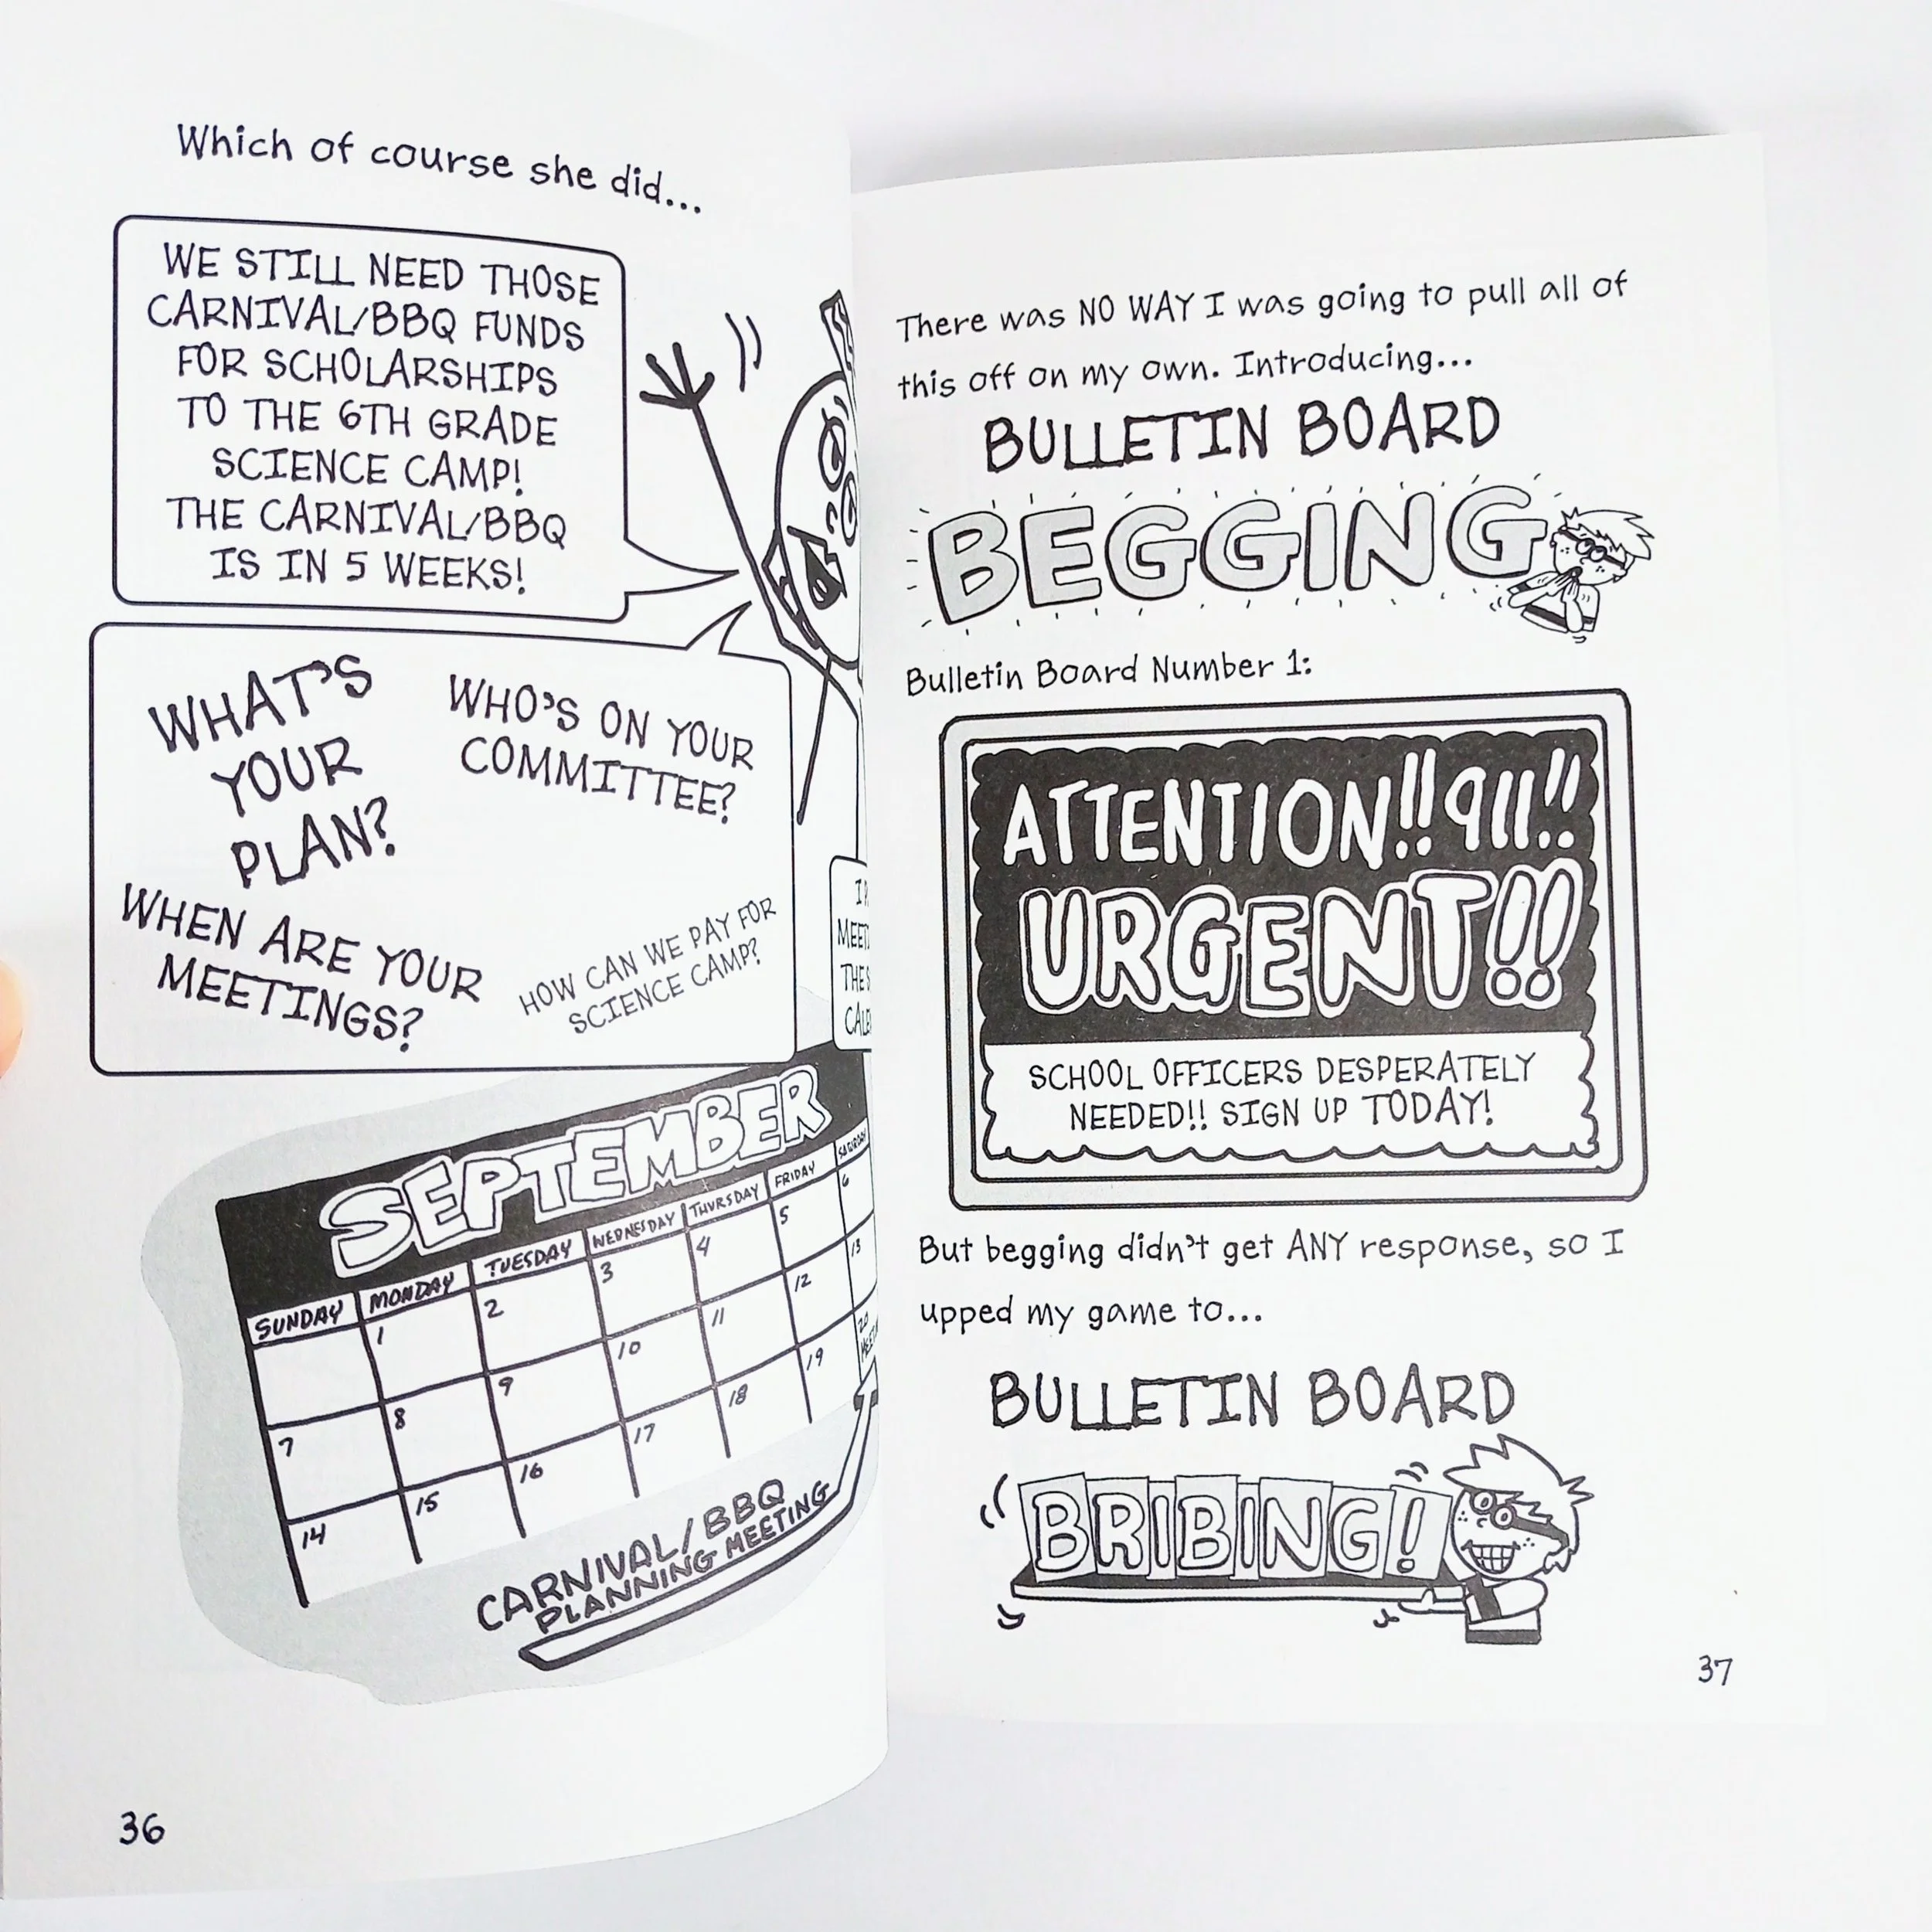 Which of course she did...
WE STILL NEED THOSE
CARNIVAL/BBQ FUNDS
FOR SCHOLARSHIPS
TO THE 6TH GRADE
SCIENCE CAMP!
THE CARNIVAL/BBQ
IS IN 5 WEEKS!
WHAT'S
YOUR
PLAN?
WHO'S ON YOUR
COMMITTEE?
WHEN ARE YOUR
MEETINGS?
HOW CAN WE PAY FOR
SCIENCE CAMP?
SEPTEMBER
SUNDAY MONDAY TUESDAY WEDNESDAY THURSDAY FRIDAY SATURDAY
1 2 3 4 5 6
7 8 9 10 11 12 13
14 15 16 17 18 19 20
CARNIVAL/BBQ
PLANNING MEETING
36
There was NO WAY I was going to pull all of
this off on my own. Introducing...
BULLETIN BOARD
BEGGING
Bulletin Board Number 1:
ATTENTION!! 911!!
URGENT!!
SCHOOL OFFICERS DESPERATELY
NEEDED!! SIGN UP TODAY!
But begging didn't get ANY response, so I
upped my game to...
BULLETIN BOARD
BRIBING!
37